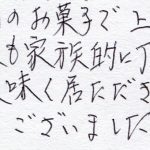 のお菓子で上
も家族的に丁
味く居たださ
ございました